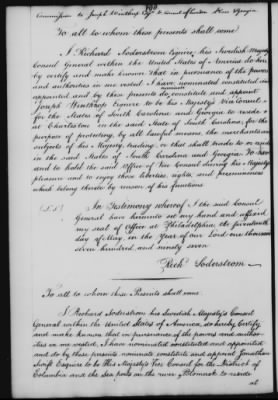 Commission to Joseph Winthrop Esqr
To all to whom these presents shall come
I Richard Soderstrom Esquire, his Swedish Majesty's
Consul General within the United States of America do here-
by certify and make known that in pursuance of the powers
and authorities in me vested I have nominated constituted and
appointed and by these presents do constitute and appoint
Joseph Winthrop Esquire to be his Majesty's Vice Consul
for the States of South Carolina and Georgia to reside
at Charleston in the said State of South Carolina, for the
purpose of protecting, by all lawful means, the merchants and
subjects of his Majesty, trading, or that shall trade to or reside
in the said States of South Carolina and Georgia. To have
and to hold the said Office of Vice Consul during his Majesty's
pleasure and to enjoy those liberties, rights, and preeminences
which belong thereto by reason of his functions
(L.S.) In Testimony whereof I the said Consul
General have hereunto set my hand and affixed
my seal of Office at Philadelphia the fourteenth
day of May, in the Year of our Lord one thousand
seven hundred, and ninety seven
Rich Soderstrom
To all to whom these Presents shall come.
I Richard Soderstrom his Swedish Majesty's Consul
General within the United States of America, do hereby Certify
and make known that in pursuance of the powers and author-
ities in me vested, I have nominated constituted and appointed
and do by these presents nominate constitute and appoint Jonathan
Swift Esquire to be His Majesty's Vice Consul for the District of
Columbia and the Sea ports on the river Potomack to reside
at